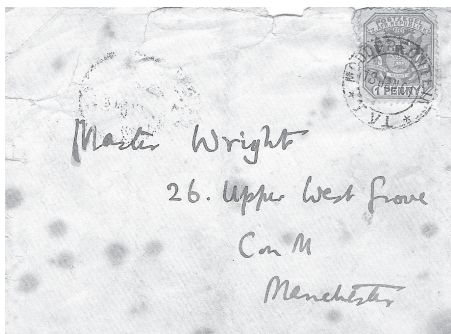 1 PENNY
Master Wright
26. Upper West Grove
C on M
Manchester